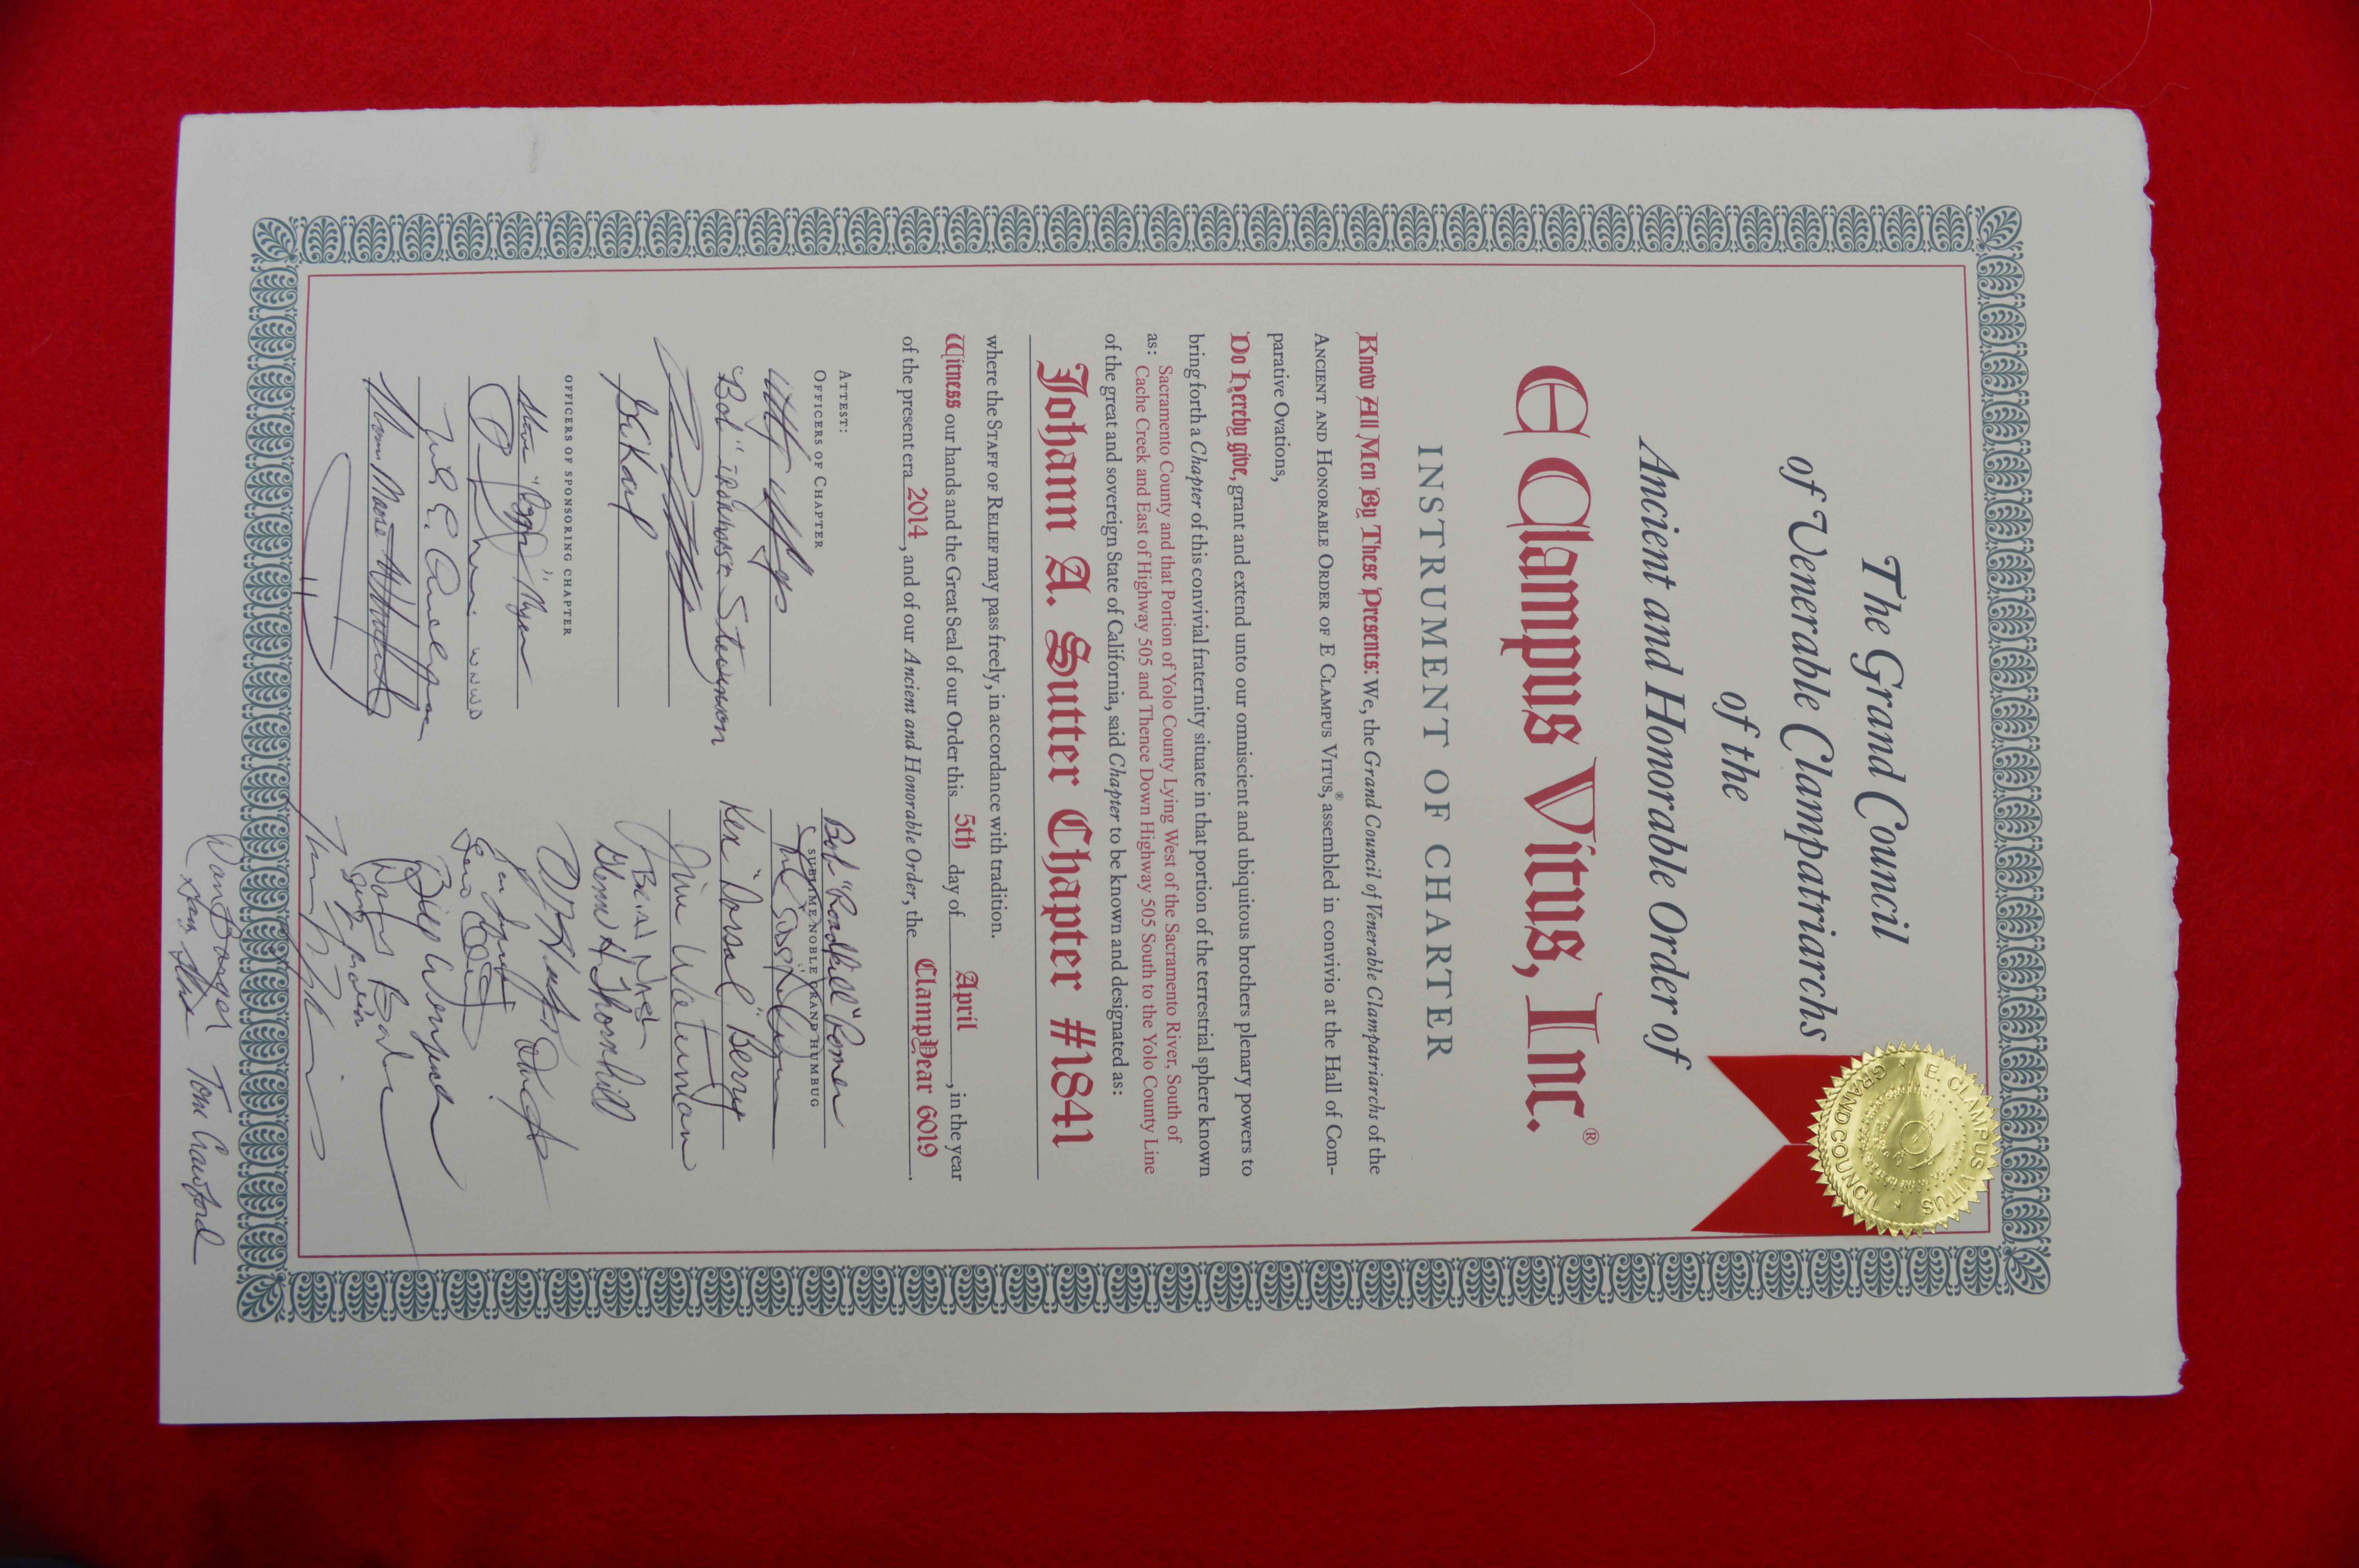 The Grand Council
of Venerable Clampatriarchs
of the
Ancient and Honorable Order of
E Clampus Vitus, Inc.®
INSTRUMENT OF CHARTER
E. CLAMPUS VITUS
GRAND COUNCIL
Know All Men By These Presents: We, the Grand Council of Venerable Clampatriarchs of the
ANCIENT AND HONORABLE ORDER OF E CLAMPUS VITUS,® assembled in convivio at the Hall of Com-
parative Ovations,
Do hereby give, grant and extend unto our omniscient and ubiquitous brothers plenary powers to
bring forth a Chapter of this convivial fraternity situate in that portion of the terrestrial sphere known
as: Sacramento County and that Portion of Yolo County Lying West of the Sacramento River, South of
Cache Creek and East of Highway 505 and Thence Down Highway 505 South to the Yolo County Line
of the great and sovereign State of California, said Chapter to be known and designated as:
Johann A. Sutter Chapter #1841
where the STAFF OF RELIEF may pass freely, in accordance with tradition.
Witness our hands and the Great Seal of our Order this 5th day of April, in the year
of the present era 2014, and of our Ancient and Honorable Order, the ClampYear 6019.
ATTEST:
OFFICERS OF CHAPTER
"Bob" Stevenson
OFFICERS OF SPONSORING CHAPTER
Bob "Roadkill" Romer
SUBLIME NOBLE GRAND HUMBUG
Ken "Dorsal" Berry
Jim Waterman
Glenn H Thornhill
Tom Crawford